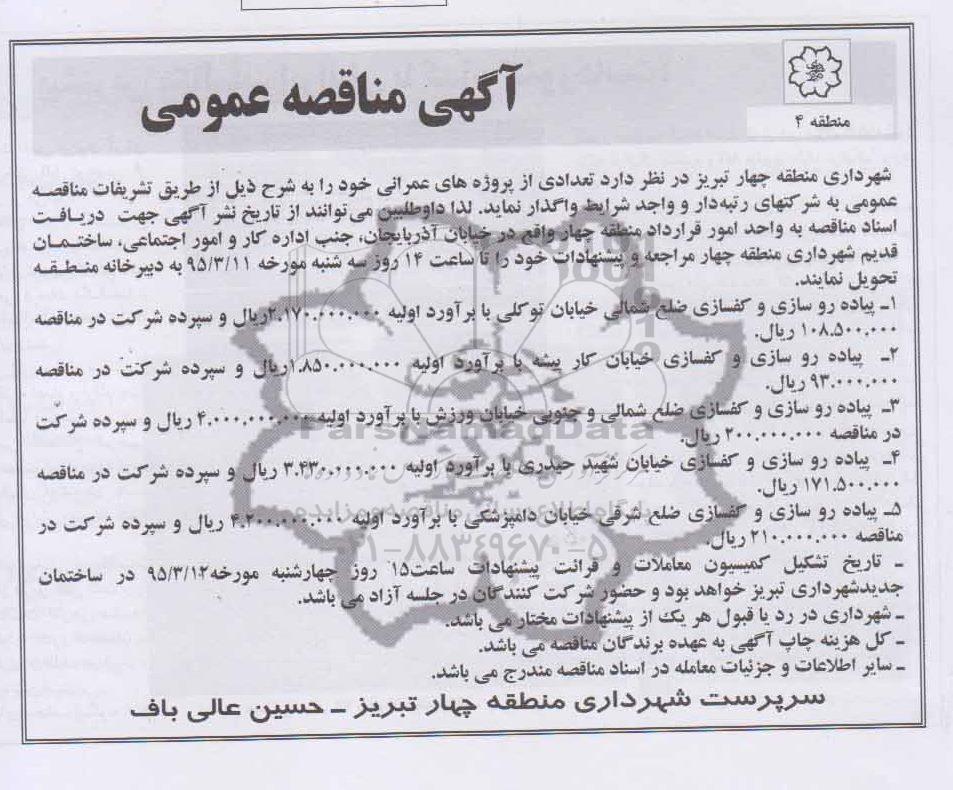 منطقه ۴
آگهی مناقصه عمومی
شهرداری منطقه چهار تبریز در نظر دارد تعدادی از پروژه های عمرانی خود را به شرح ذیل از طریق تشریفات مناقصه
عمومی به شرکتهای رتبه‌دار و واجد شرایط واگذار نماید. لذا داوطلبین می‌توانند از تاریخ نشر آگهی جهت دریافت
اسناد مناقصه به واحد امور قرارداد منطقه چهار واقع در خیابان آذربایجان، جنب اداره کار و امور اجتماعی، ساختمان
قدیم شهرداری منطقه چهار مراجعه و پیشنهادات خود را تا ساعت ۱۴ روز سه شنبه مورخه ۹۵/۳/۱۱ به دبیرخانه منطقه
تحویل نمایند.
۱ـ پیاده رو سازی و کفسازی ضلع شمالی خیابان توکلی با برآورد اولیه ۲.۱۷۰.۰۰۰.۰۰۰ریال و سپرده شرکت در مناقصه
۱۰۸.۵۰۰.۰۰۰ ریال.
۲ـ پیاده رو سازی و کفسازی خیابان کار پیشه با برآورد اولیه ۱.۸۵۰.۰۰۰.۰۰۰ریال و سپرده شرکت در مناقصه
۹۳.۰۰۰.۰۰۰ ریال.
۳ـ پیاده رو سازی و کفسازی ضلع شمالی و جنوبی خیابان ورزش با برآورد اولیه ۴.۰۰۰.۰۰۰.۰۰۰ ریال و سپرده شرکت
در مناقصه ۲۰۰.۰۰۰.۰۰۰ ریال.
ParsNamadData
۴ـ پیاده رو سازی و کفسازی خیابان شهید حیدری با برآورد اولیه ۳.۴۳۰.۰۰۰.۰۰۰ ریال و سپرده شرکت در مناقصه
۱۷۱.۵۰۰.۰۰۰ ریال.
پایگاه اطلاع رسانی مناقصه و مزایده
۵ـ پیاده رو سازی و کفسازی ضلع شرقی خیابان دامپزشکی با برآورد اولیه ۴.۲۰۰.۰۰۰.۰۰۰ ریال و سپرده شرکت در
مناقصه ۲۱۰.۰۰۰.۰۰۰ ریال.
۰۲۱-۸۸۳۴۹۶۷۰-۵
ـ تاریخ تشکیل کمیسیون معاملات و قرائت پیشنهادات ساعت۱۵ روز چهارشنبه مورخه۹۵/۳/۱۲ در ساختمان
جدیدشهرداری تبریز خواهد بود و حضور شرکت کنندگان در جلسه آزاد می باشد.
ـ شهرداری در رد یا قبول هر یک از پیشنهادات مختار می باشد.
ـ کل هزینه چاپ آگهی به عهده برندگان مناقصه می باشد.
ـ سایر اطلاعات و جزئیات معامله در اسناد مناقصه مندرج می باشد.
سرپرست شهرداری منطقه چهار تبریز ـ حسین عالی باف